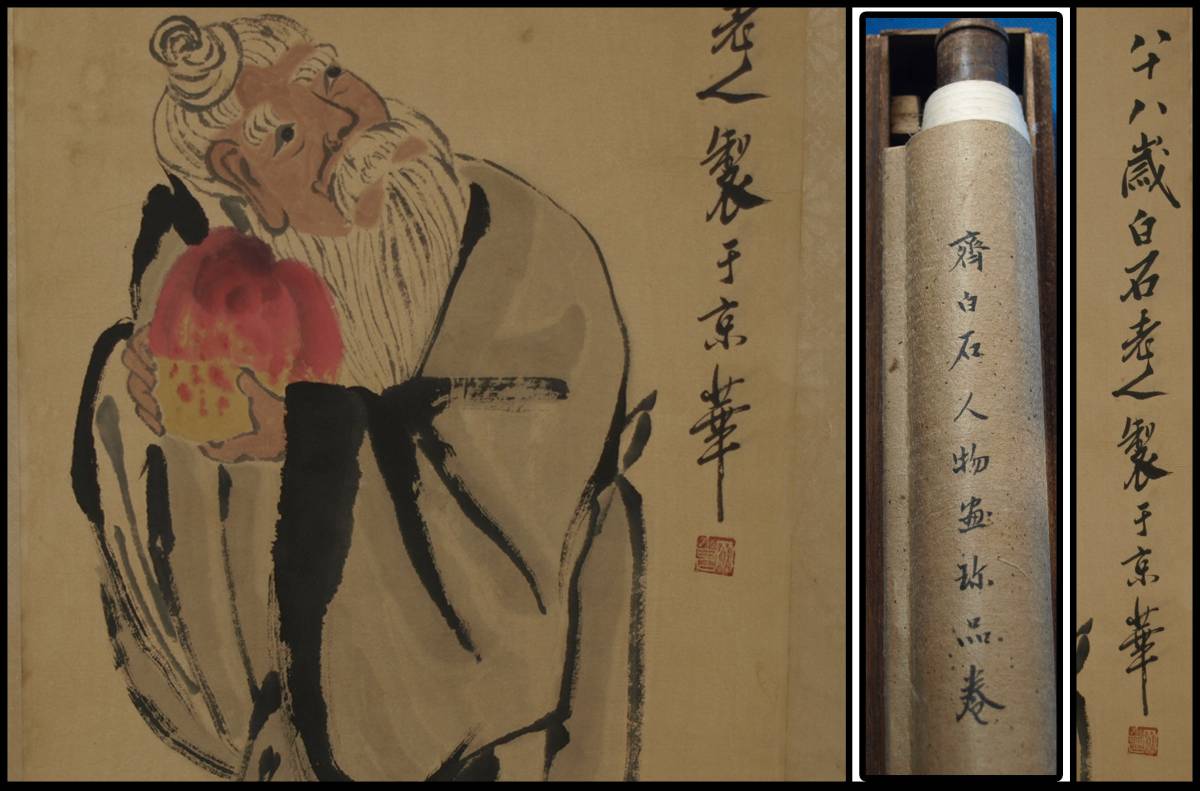 老人製于京華
齊白石人物畫珎品卷
八十八歲白石老人製于京華